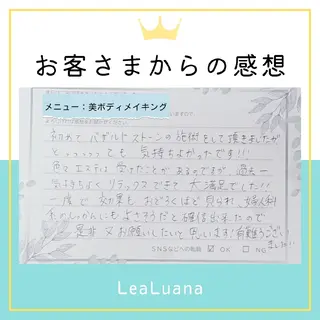 お客さまからの感想
メニュー：美ボディメイキング
初めて バザルトストーンの施術をして頂きましたが
とっっっっても 気持ちよかったです!!!
色々エステは 行ったことがあるのですが 過去一
気持ちよく リラックスできて 大満足でした!!
一度で 効果も おどろくほど 見られ、婦人科
も よさそうだと 確信出来たので
是非 又お願いしたいと 思います! 有難うござい
ました!!
SNSなどへの掲載 ☑ OK □ NO
LeaLuana